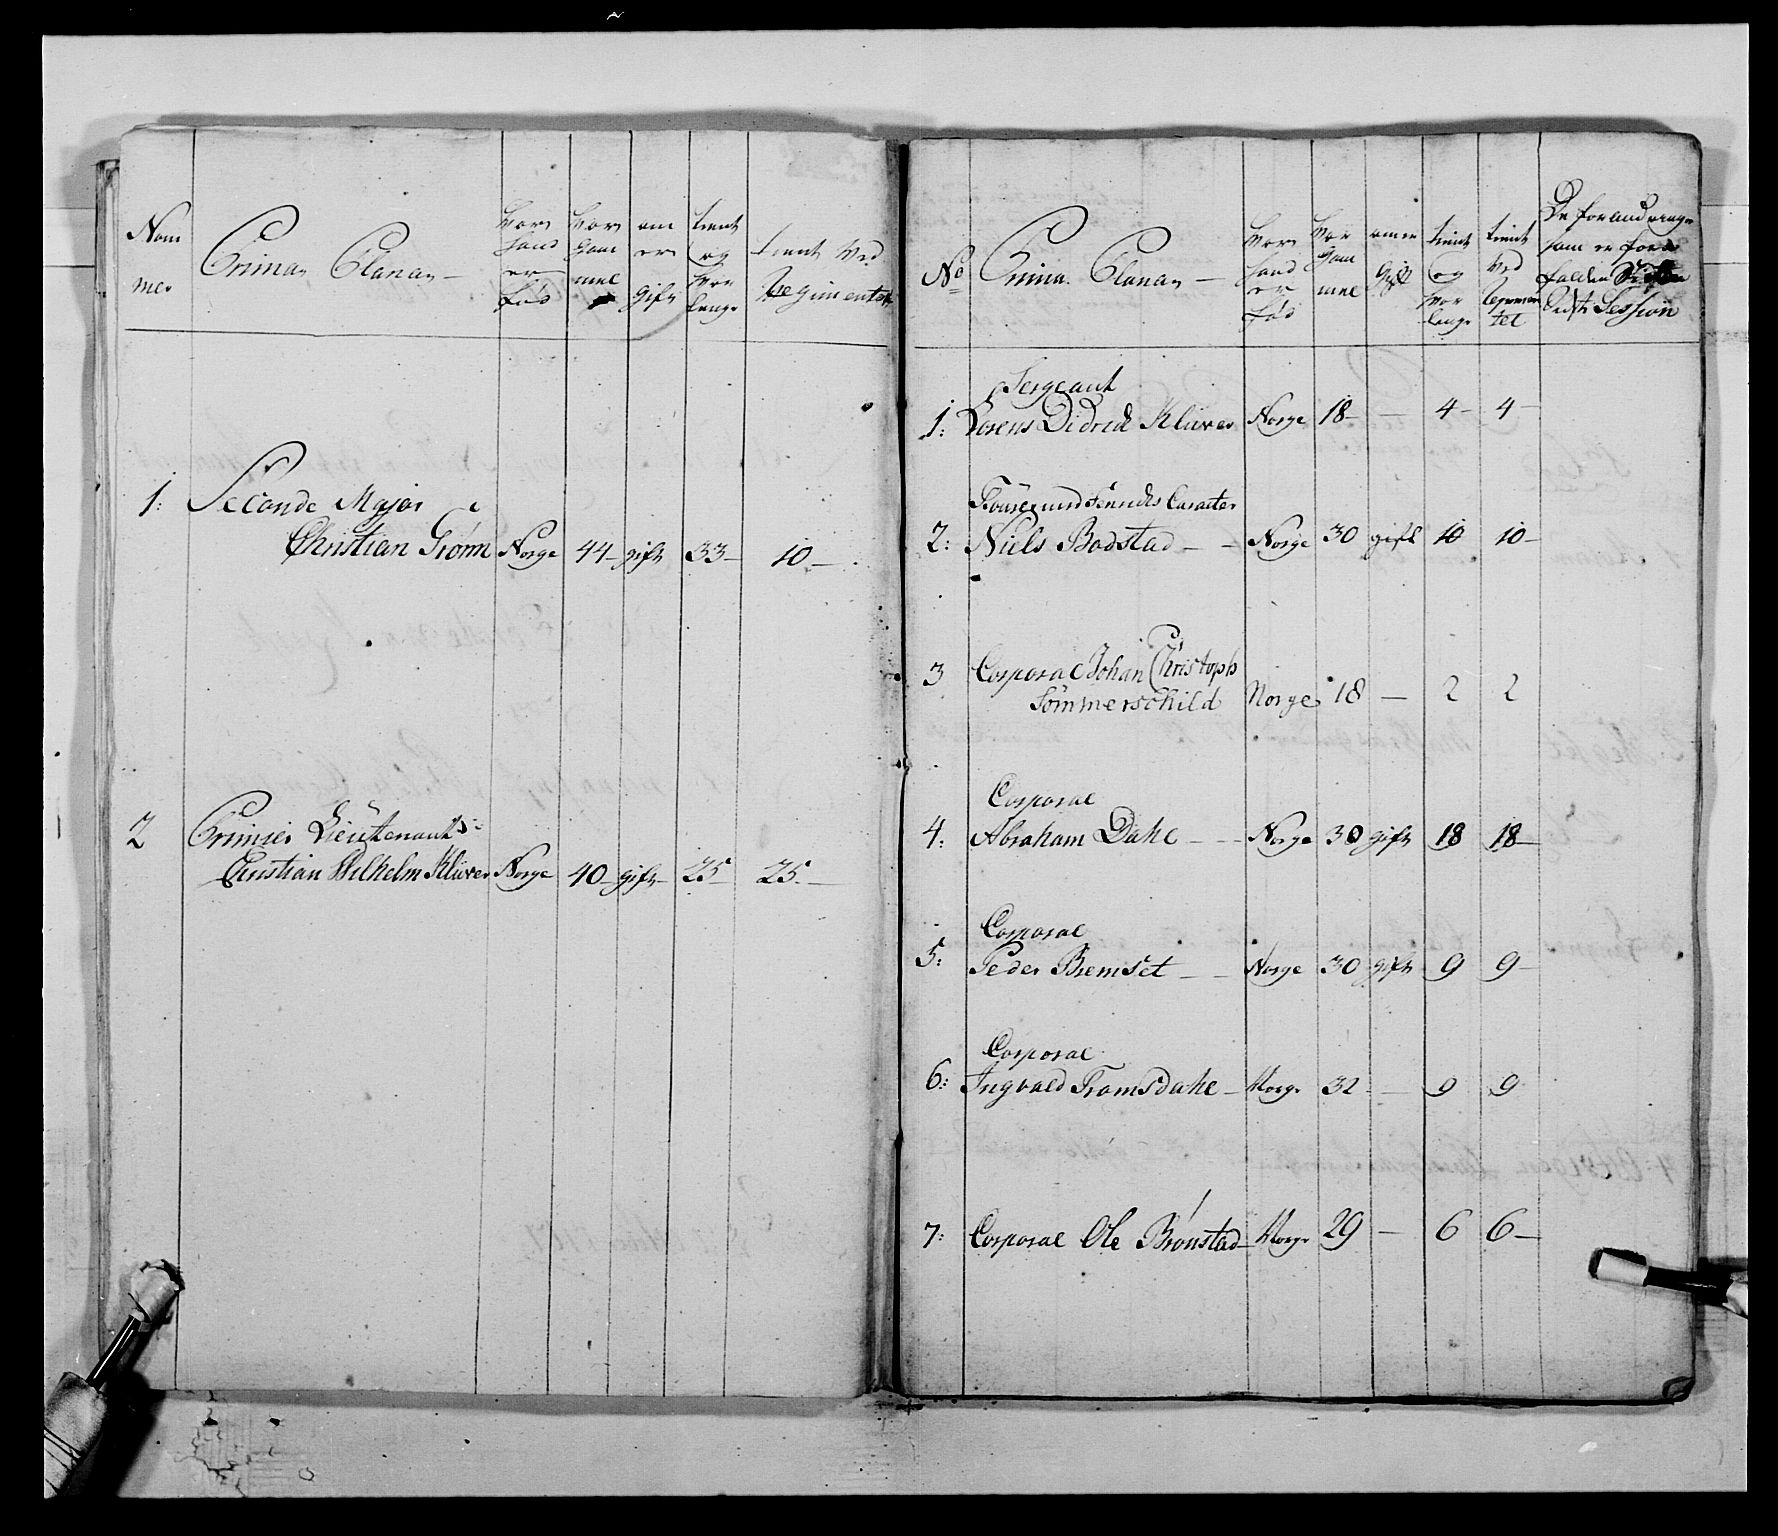 Nom
mer
Prima Plana
Hvor
Land
er
Fød
Hvor
Gam
mel
om
er
gift
tient
og
Hvor
lenge
tient ved
Regimentet
1: Seconde Major
Christian Grønn Norge 44 gift 33 10
2 Primier Lieutenant
Christian Wilhelm Klüver Norge 40 gift 25 25
No
Prima Plana
Hvor
Land
er
Fød
Hvor
Gam
mel
om er
Gift
tient
og
Hvor
lenge
tient
ved
Regimen
tet
De forandringer
som er fore
falden
Sidste Session
Sergeant
1: Lorens Didrick Klüver Norge 18 - 4 4
Caracter
2: Niels Bodstad Norge 30 gift 10 10
3 Corporal Johan Christoph
Sommerschild Norge 18 - 2 2
Corporal
4: Abraham Dahl Norge 30 gift 18 18
Corporal
5: Peder Bremset Norge 30 gift 9 9
Corporal
6: Ingvald Tromsdahl Norge 32 - 9 9
7: Corporal Ole Brønstad Norge 29 - 6 6